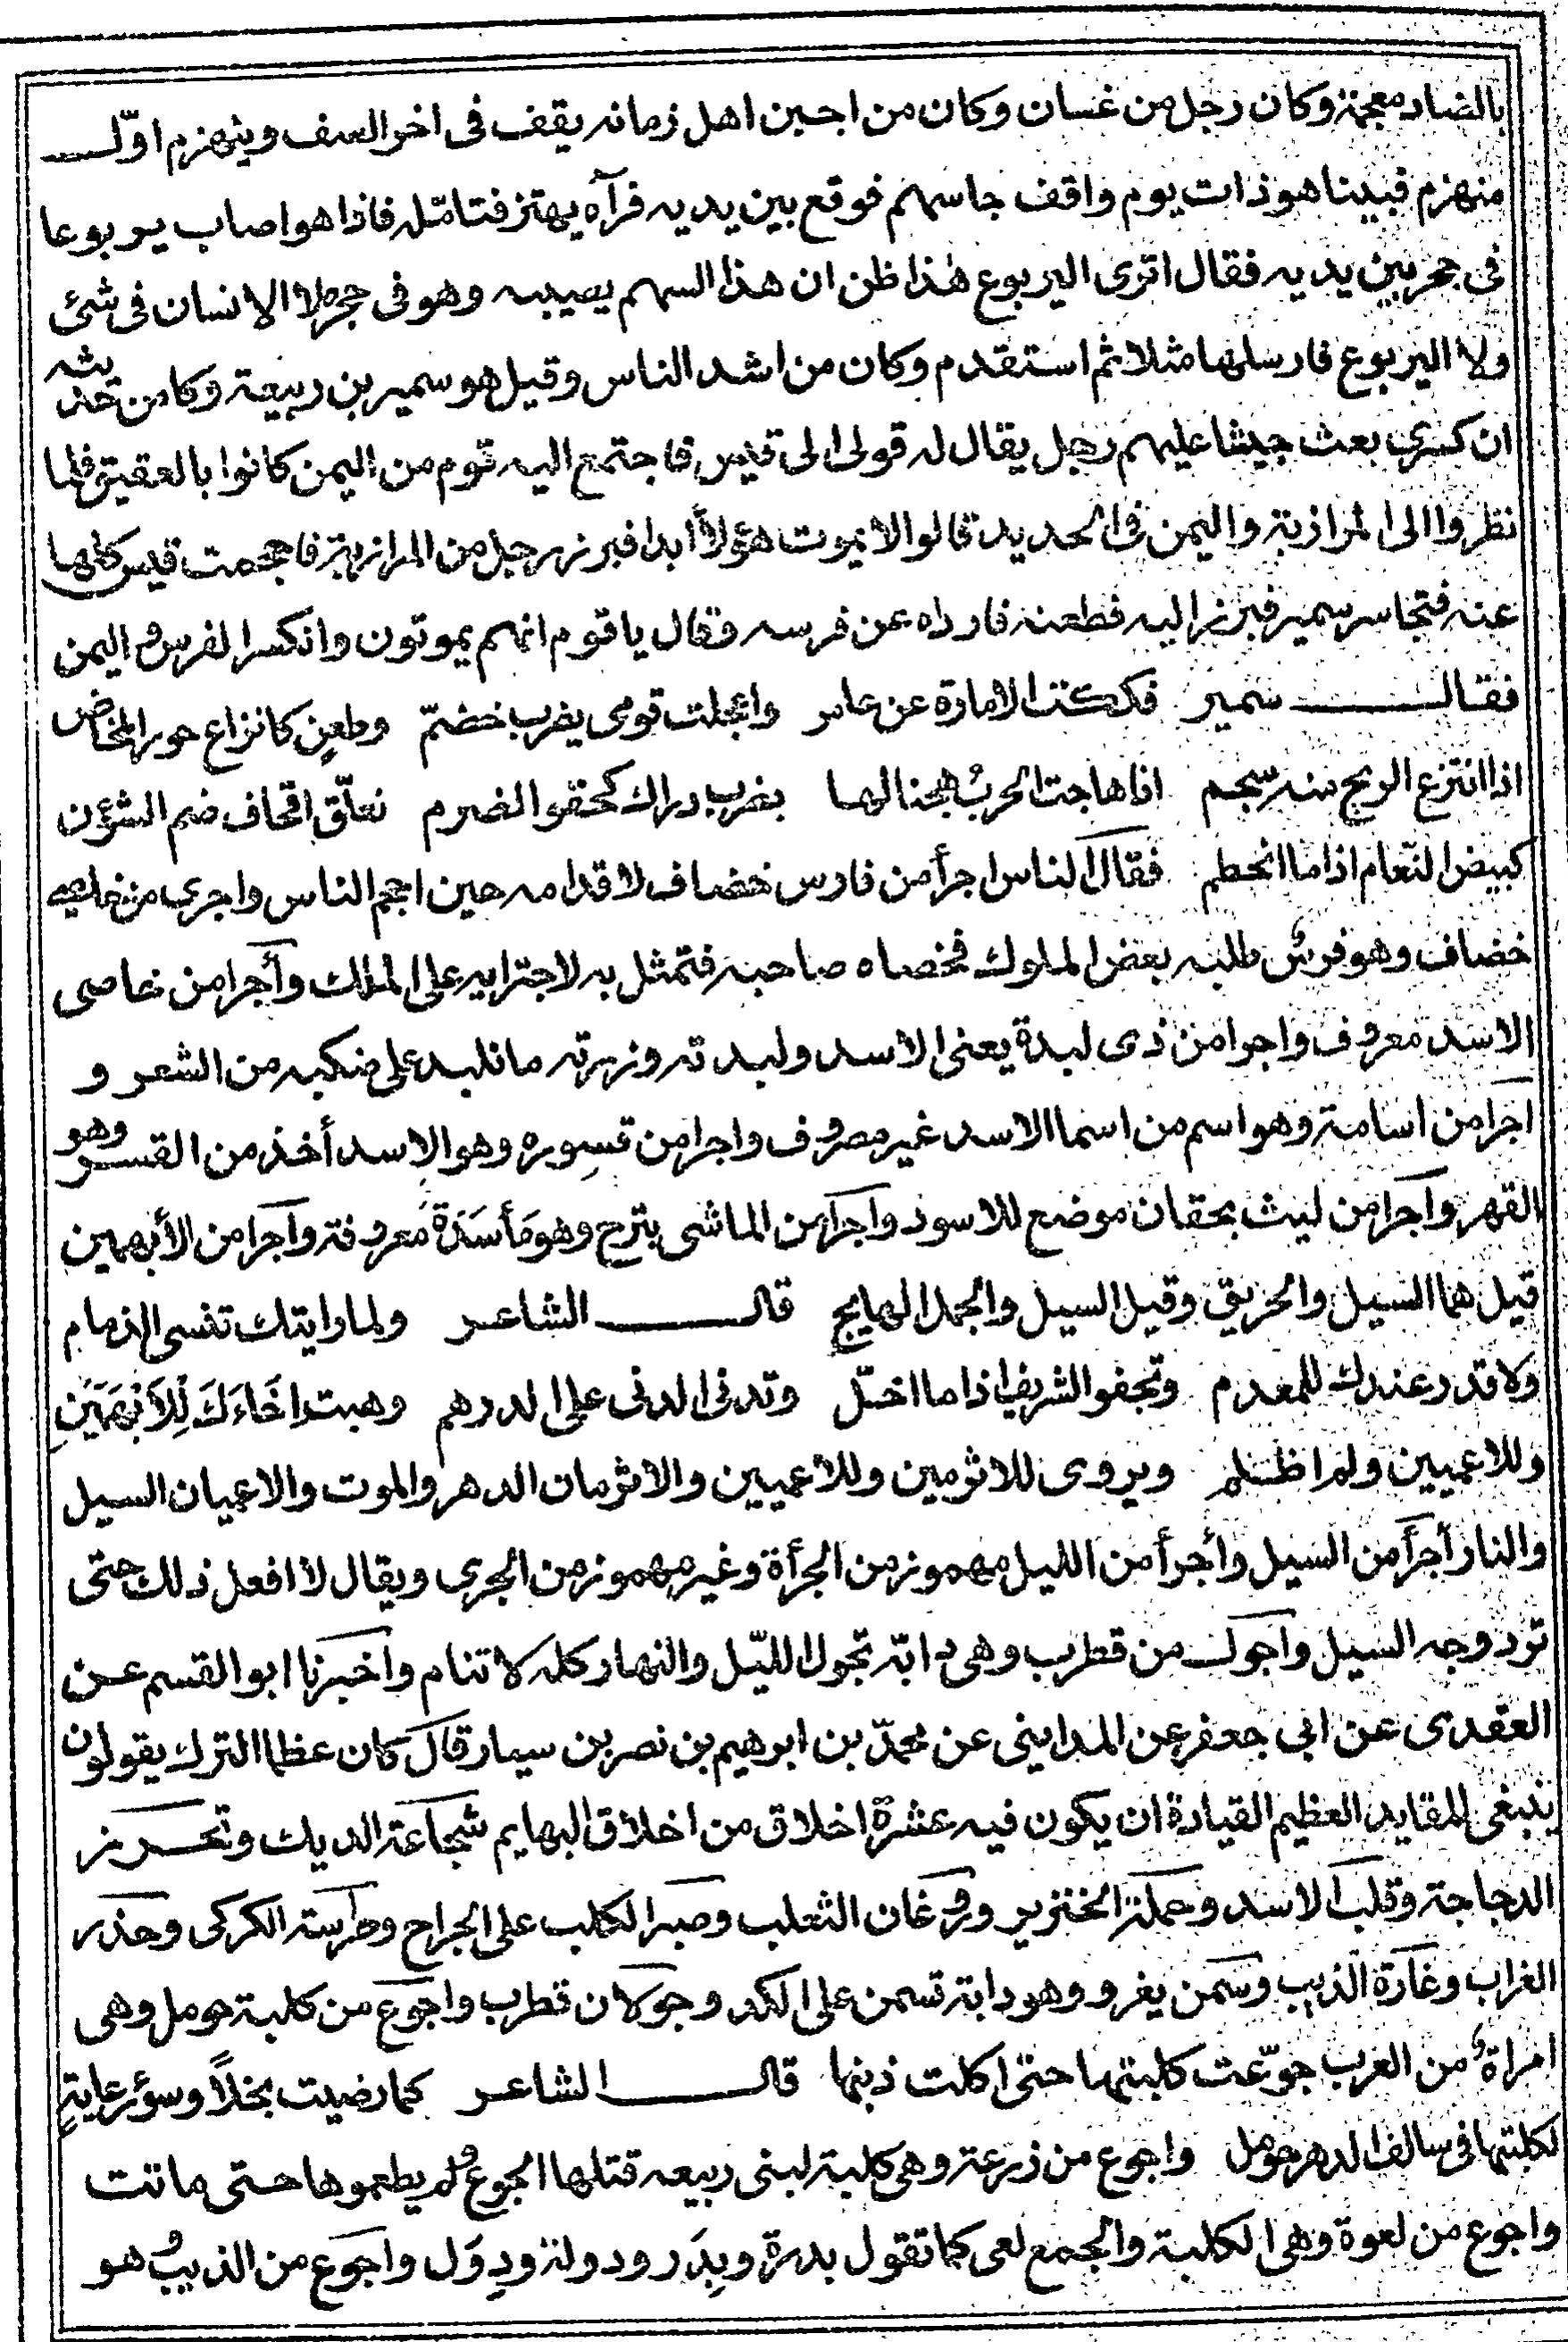 بالضاد معجمة وكان رجل من غسان وكان من اجبن اهل زمانه يقف فى اخر الصف وينهزم اول
منهزم فبينا هو ذات يوم واقف جا سهم فوقع بين يديه فرآه يهتز فتامّله فاذا هو اصاب يربوعا
فى جحر بين يديه فقال اترى اليربوع هذا ظن ان هذا السهم يصيبه وهو فى جحر لا الانسان فى شئ
ولا اليربوع فارسلها مثلا ثم استقدم وكان من اشد الناس وقيل هو سمير بن ربيعة وكا من حديثه
ان كسرى بعث جيشا عليهم رجل يقال له قولى الى قيس فاجتمع اليه قوم من اليمن كانوا بالعقيق فلما
نظروا الى المرازبة واليمن فى الحديد قالوا لا يموت هؤلأ أبدا فبرز رجل من المرازبة فاحجمت قيس كلها
عنه فتجاسر سمير فبرز اليه فطعنه فارداه عن فرسه وقال يا قوم انهم يموتون وانكسر الفرس و اليمن
فقال سمير فككت الامارة عن عامر واعجلت قومى بضرب خضمّ وطعنٍ كانزاع حور المخاض
اذا انتزع الريح منه سجم اذا هاجت الحربُ هجنا لها بضرب دراك كحقو الضرم نعلّق اقحاف ضم الشؤن
كبيض النّعام اذا ما انحطم فقال الناس اجرأ من فارس خضاف لاقدامه حين احجم الناس واجرى من خاصى
خضاف وهو فرسٌ طلبه بعض الملوك فخصاه صاحبه فتمثل به لاجترايه على الملك وأجرا من خاصى
الاسد معروف واجرا من ذى لبدة يعنى الاسد ولبدته وزبرته ما تلبد على منكبيه من الشعر و
اجرا من اسامة وهو اسم من اسما الاسد غير مصروف واجرا من قسوره وهو الاسد أخذ من القسر وهو
القهر واجرا من ليث بخفان موضع للاسود واجرا من الماشى بترج وهو مَأسَدَة معروفة واجرا من الأيهمين
قيل هما السيل والحريق وقيل السيل والجمل الهايج قال الشاعر ولما رايتك تنسى الذمام
ولا قدر عندك للمعدم وتجفو الشريف اذا ما اخلّ وتدنى الدنى على الدرهم وهبت اخَاءَكَ لِلأَيْهَمَيْنِ
وللاعميين ولم اظلم ويروى للاثرمين وللاعميين والاثرمان الدهر والموت والاعميان السيل
والنار أجرأ من السيل وأجرأ من الليل مهموز من الجرأة وغير مهموز من الجرى ويقال لا افعل ذلك حتى
ترد وجه السيل واجول من قطرب وهى دابّة تجول الليّل والنهار كله لا تنام واخبرنا ابو القسم عن
العقدى عن ابى جعفر عن المداينى عن محمّد بن ابرهيم بن نصر بن سيار قال كان عظما الترك يقولون
ينبغى للقايد العظيم القيادة ان يكون فيه عشرة اخلاق من اخلاق البهايم شجاعة الديك وتحرز
الدجاجة وقلب الاسد وحملة الخنزير وروغان الثعلب وصبر الكلب على الجراح وحراسة الكركى وحذر
الغراب وغارة الذيب وسمن يغرو وهو دابة تسمن على الكد وجولان قطرب واجوع من كلبة حومل وهى
امراةٌ من العرب جوّعت كلبتها حتى اكلت ذنبها قال الشاعر كما رضيت بخلاً وسؤ رعايةٍ
لكلبتها فى سالف الدهر حومل واجوع من زرعة وهى كلبة لبنى ربيعه قتلها الجوع ولم يطعموها حتى ماتت
واجوع من لعوة وهى الكلبة والجمع لعى كما تقول بدرة وبِدَر ودولة ودِوَل واجوع من الذيب و هو